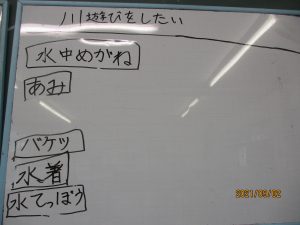 川遊びをしたい
水中めがね
あみ
バケツ
水着
水てっぽう
2021/09/02